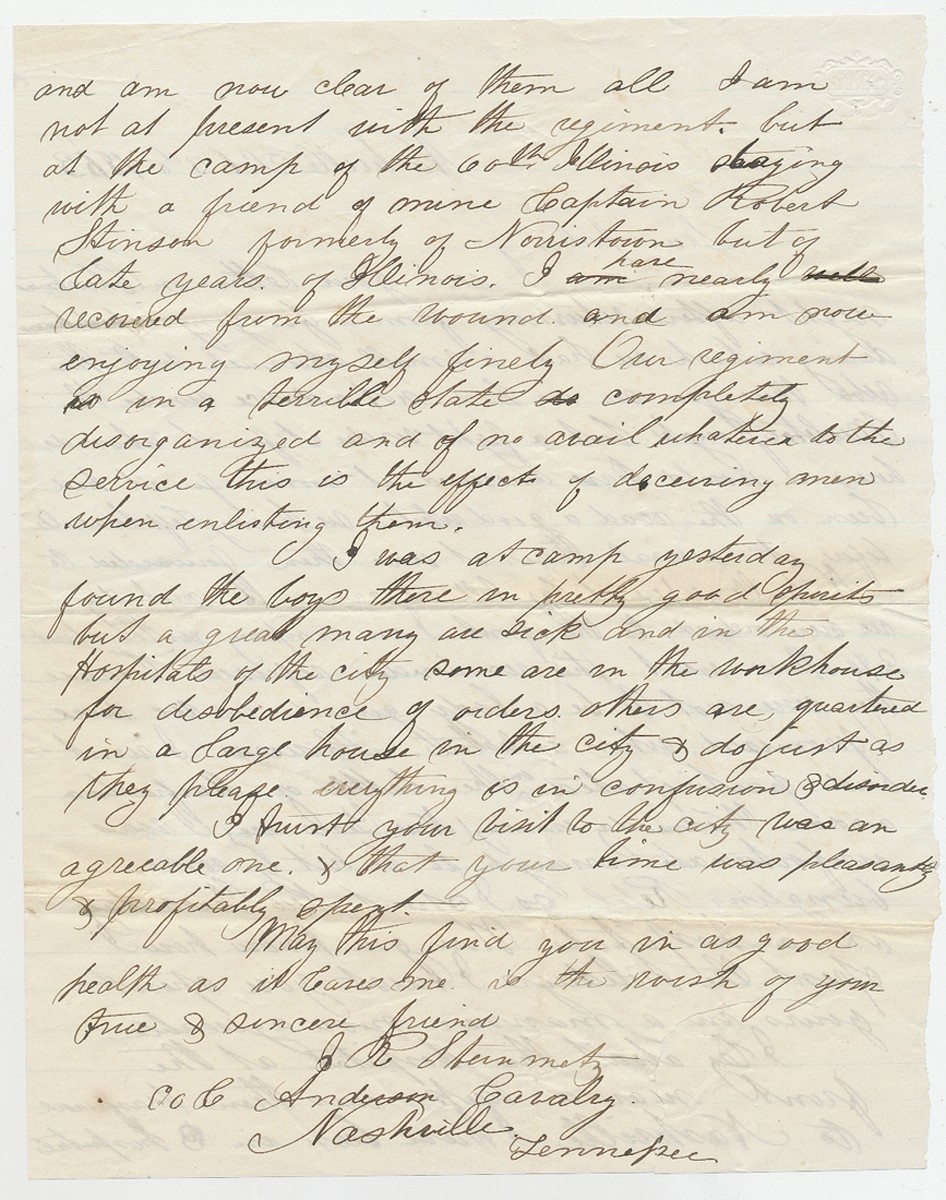 and am now clear of them all I am
not at present with the regiment. but
at the camp of the 60th Illinois staying
with a friend of mine Captain Robert
Stinson formerly of Norristown but of
late years. of Illinois. I am have nearly well
recovered from the wound. and am now
enjoying myself finely Our regiment
is in a terrible state so completely
disorganized and of no avail whatever to the
service this is the effect of deceiving men
when enlisting them.
I was at camp yesterday
found the boys there in pretty good spirits
but a great many are sick and in the
Hospitals of the city some are in the workhouse
for disobedience of orders. others are, quartered
in a large house in the city & do just as
they please. everything is in confusion & disorder.
I trust your visit to the city was an
agreeable one. & that your time was pleasantly
& profitably spent.
May this find you in as good
health as it leaves me. is the wish of your
true & sincere friend
J R Steinmetz
Co C Anderson Cavalry.
Nashville.
Tennessee